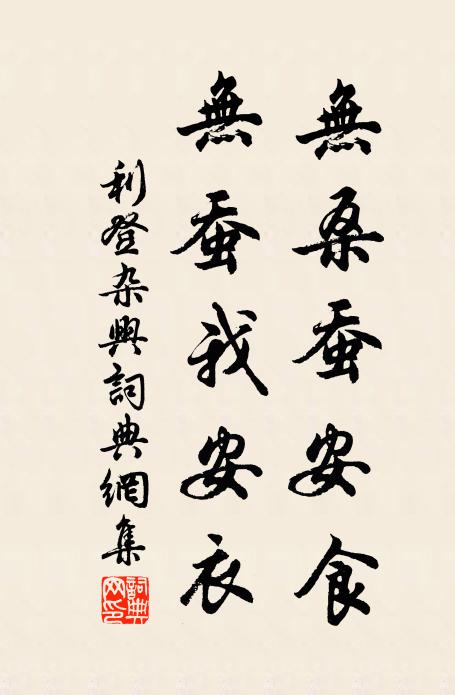 無桑蚕安食
無蚕我安衣
利登杂興詞典網集
詞典网印